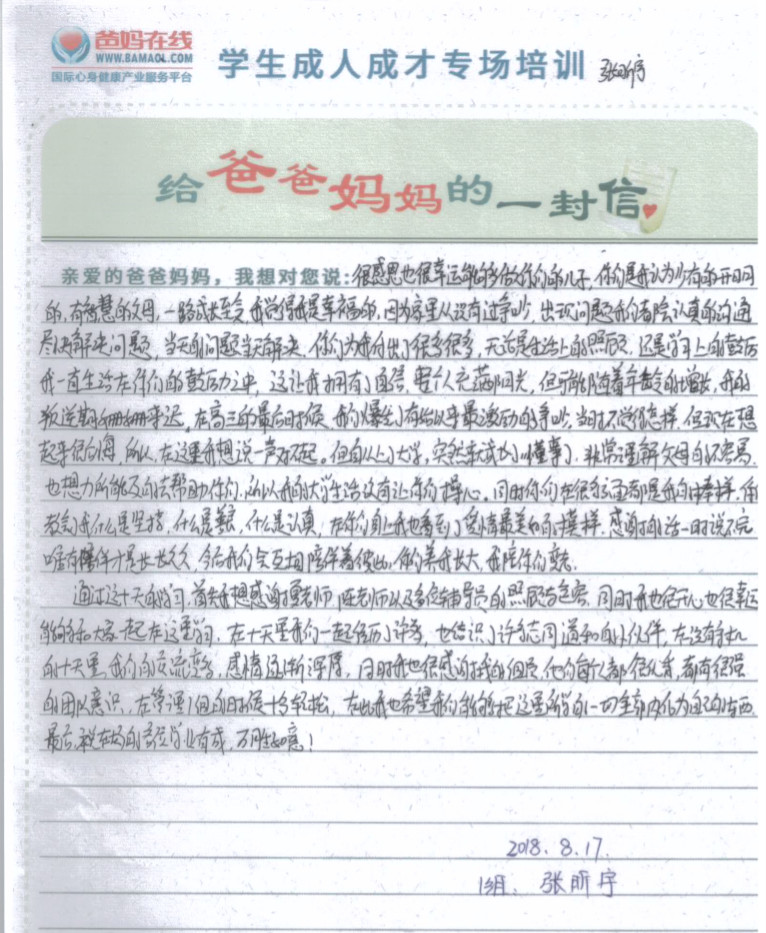 爸妈在线
WWW.BAMAOL.COM
国际心身健康产业服务平台
学生成人成才专场培训 张昕宇
给爸爸妈妈的一封信
亲爱的爸爸妈妈,我想对您说:很感恩也很幸运能够做你们的儿子,你们是我认为少有的开明
的,有智慧的父母,一路成长至今我觉得我是幸福的,因为家里从没有过争吵,出现问题我们都会认真的沟通
尽快解决问题,当天的问题当天解决,你们为我付出了很多很多,无论是生活上的照顾,还是学习上的鼓励
我一直生活在你们的鼓励之中,这让我拥有了自信,整个人充满阳光,但可能随着年龄的增长,我的
叛逆期姗姗来迟,在高三的最后时候,我们爆发了有始以来最激动的争吵,当时不觉得怎样,但现在想
起来很后悔,所以,在这里我想说一声对不起,但自从上了大学,突然东成长懂事了,非常理解父母的不容易
也想力所能及的去帮助你们,所以我的大学生活没有让你们操心,同时你们在很多方面都是我的榜样,你
教会了我什么是坚持,什么是,什么是认真,在你们身上我也看到了爱情最美好的模样,感谢的话一时说不完
唯有陪伴才是长长久久,今后我们会互相陪伴着彼此,你们养我长大,我陪你们变老.
通过这十天的学习,首先我想感谢老师,陈老师以及多位辅导员的照顾与包容,同时我也很开心也很幸运
能够和大家一起在这里学习,在十天里我们一起经历了许多,也结识了许多志同道合的小伙伴,在没有手机
的十天里,我们的交流变多,感情逐渐深厚,同时我也很感谢我的组员,他们每个人都很优秀,都有很强
的团队意识,在管理1组的时候十分轻松,在此我也希望我们能够把这里所学的一切全部内化为自己的东西
最后,祝在场的各位学业有成,万事如意!
2018.8.17.
1组、张昕宇